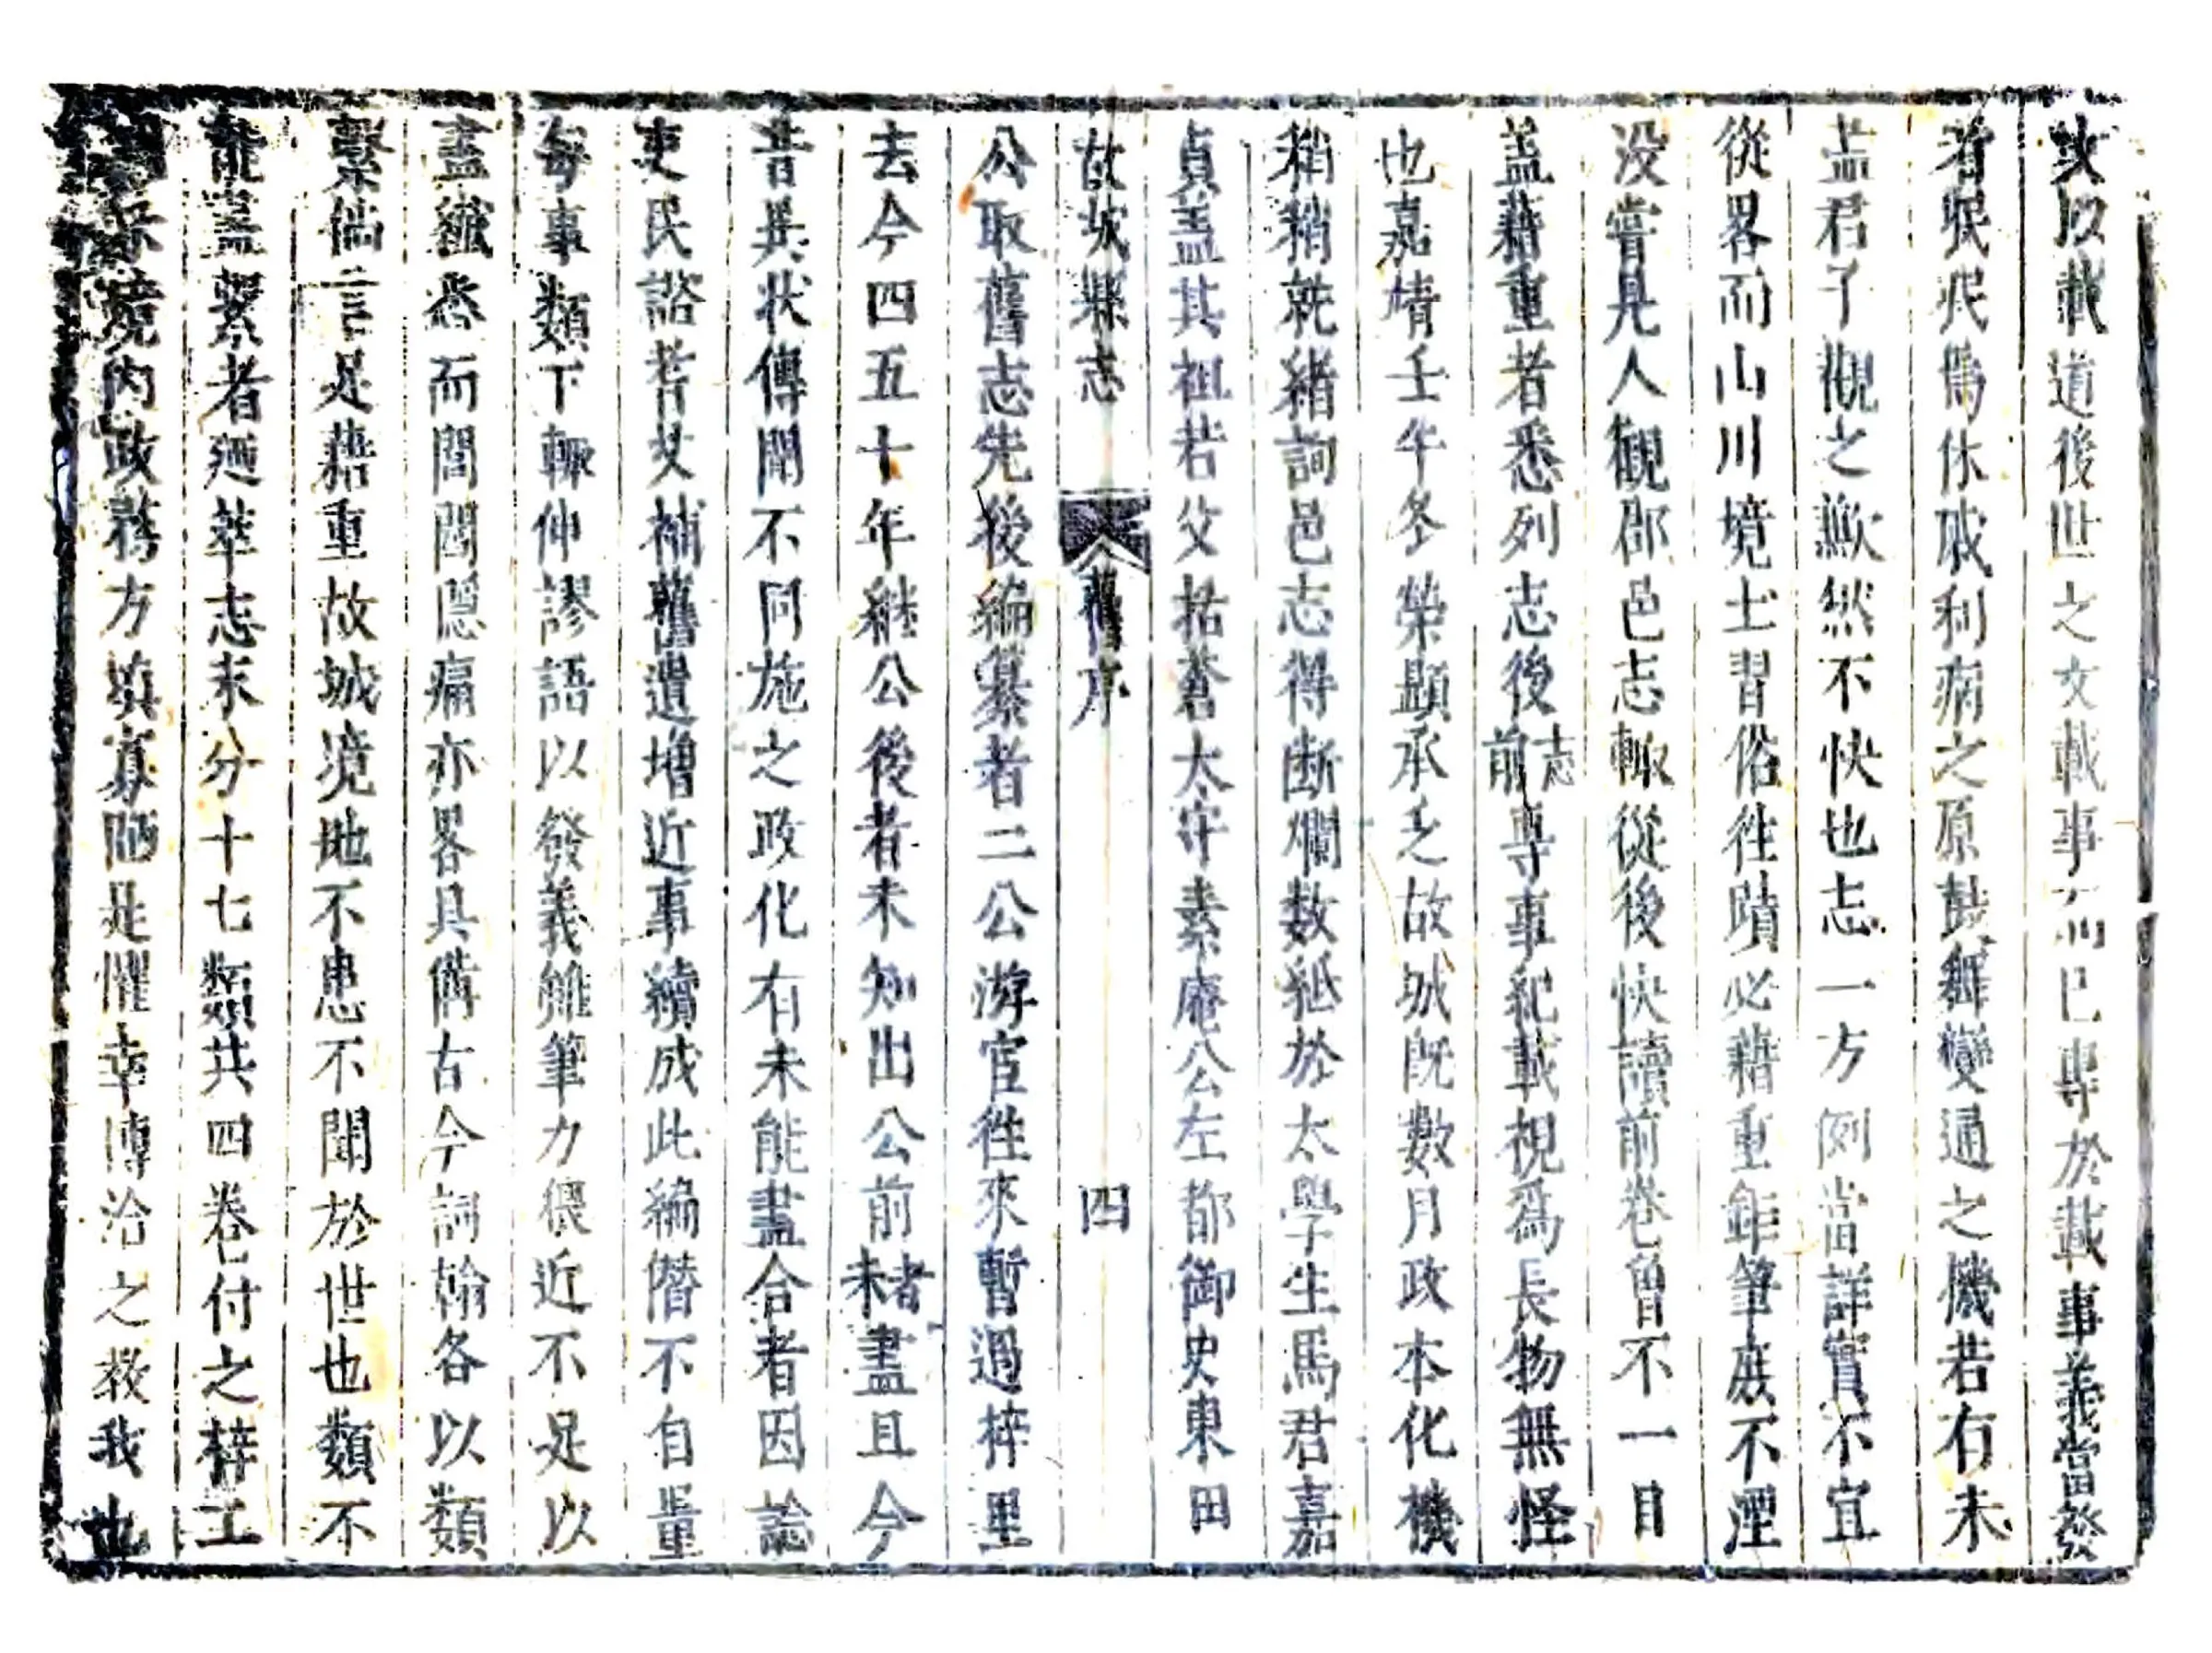 文以載道後世之文載事已專於載事義當發
者氓民爲休戚利病之原鼓舞變通之機若有未
盖君子觀之歉然不快也志一方例當詳實不宜
從畧而山川境土習俗往蹟必藉重鉅筆庻不湮
没嘗見人觀郡邑志輙從後快讀前卷曾不一目
盖藉重者悉列志後前志專事紀載視爲長物無怪
也嘉靖壬午冬榮顯承乏故城旣數月政本化機
稍稍就緒詞邑志得断爛数紙於太學生馬君嘉
貞盖其祖若父括蒼太守素庵公左都御史東田
故城縣志 舊序 四
公取舊志先後編纂者二公游宦徃來暫過梓里
去今四五十年継公後者未知出公前者未盡且今
昔異状傳聞不同施之政化有未能盡合者因諭
吏民諮耆艾補舊遺增近事續成此編僭不自量
每事類下輙伸謬語以發義雖筆力猥近不足以
盡纎悉而閭閻隱痛亦畧具俻古今詞翰各以類
繫倘言是藉重故城境地不患不聞於世也類不
能盖繫者廼萃志末分十七類共四卷付之梓工
境内政務方填寡陋是懼幸博洽之教我也